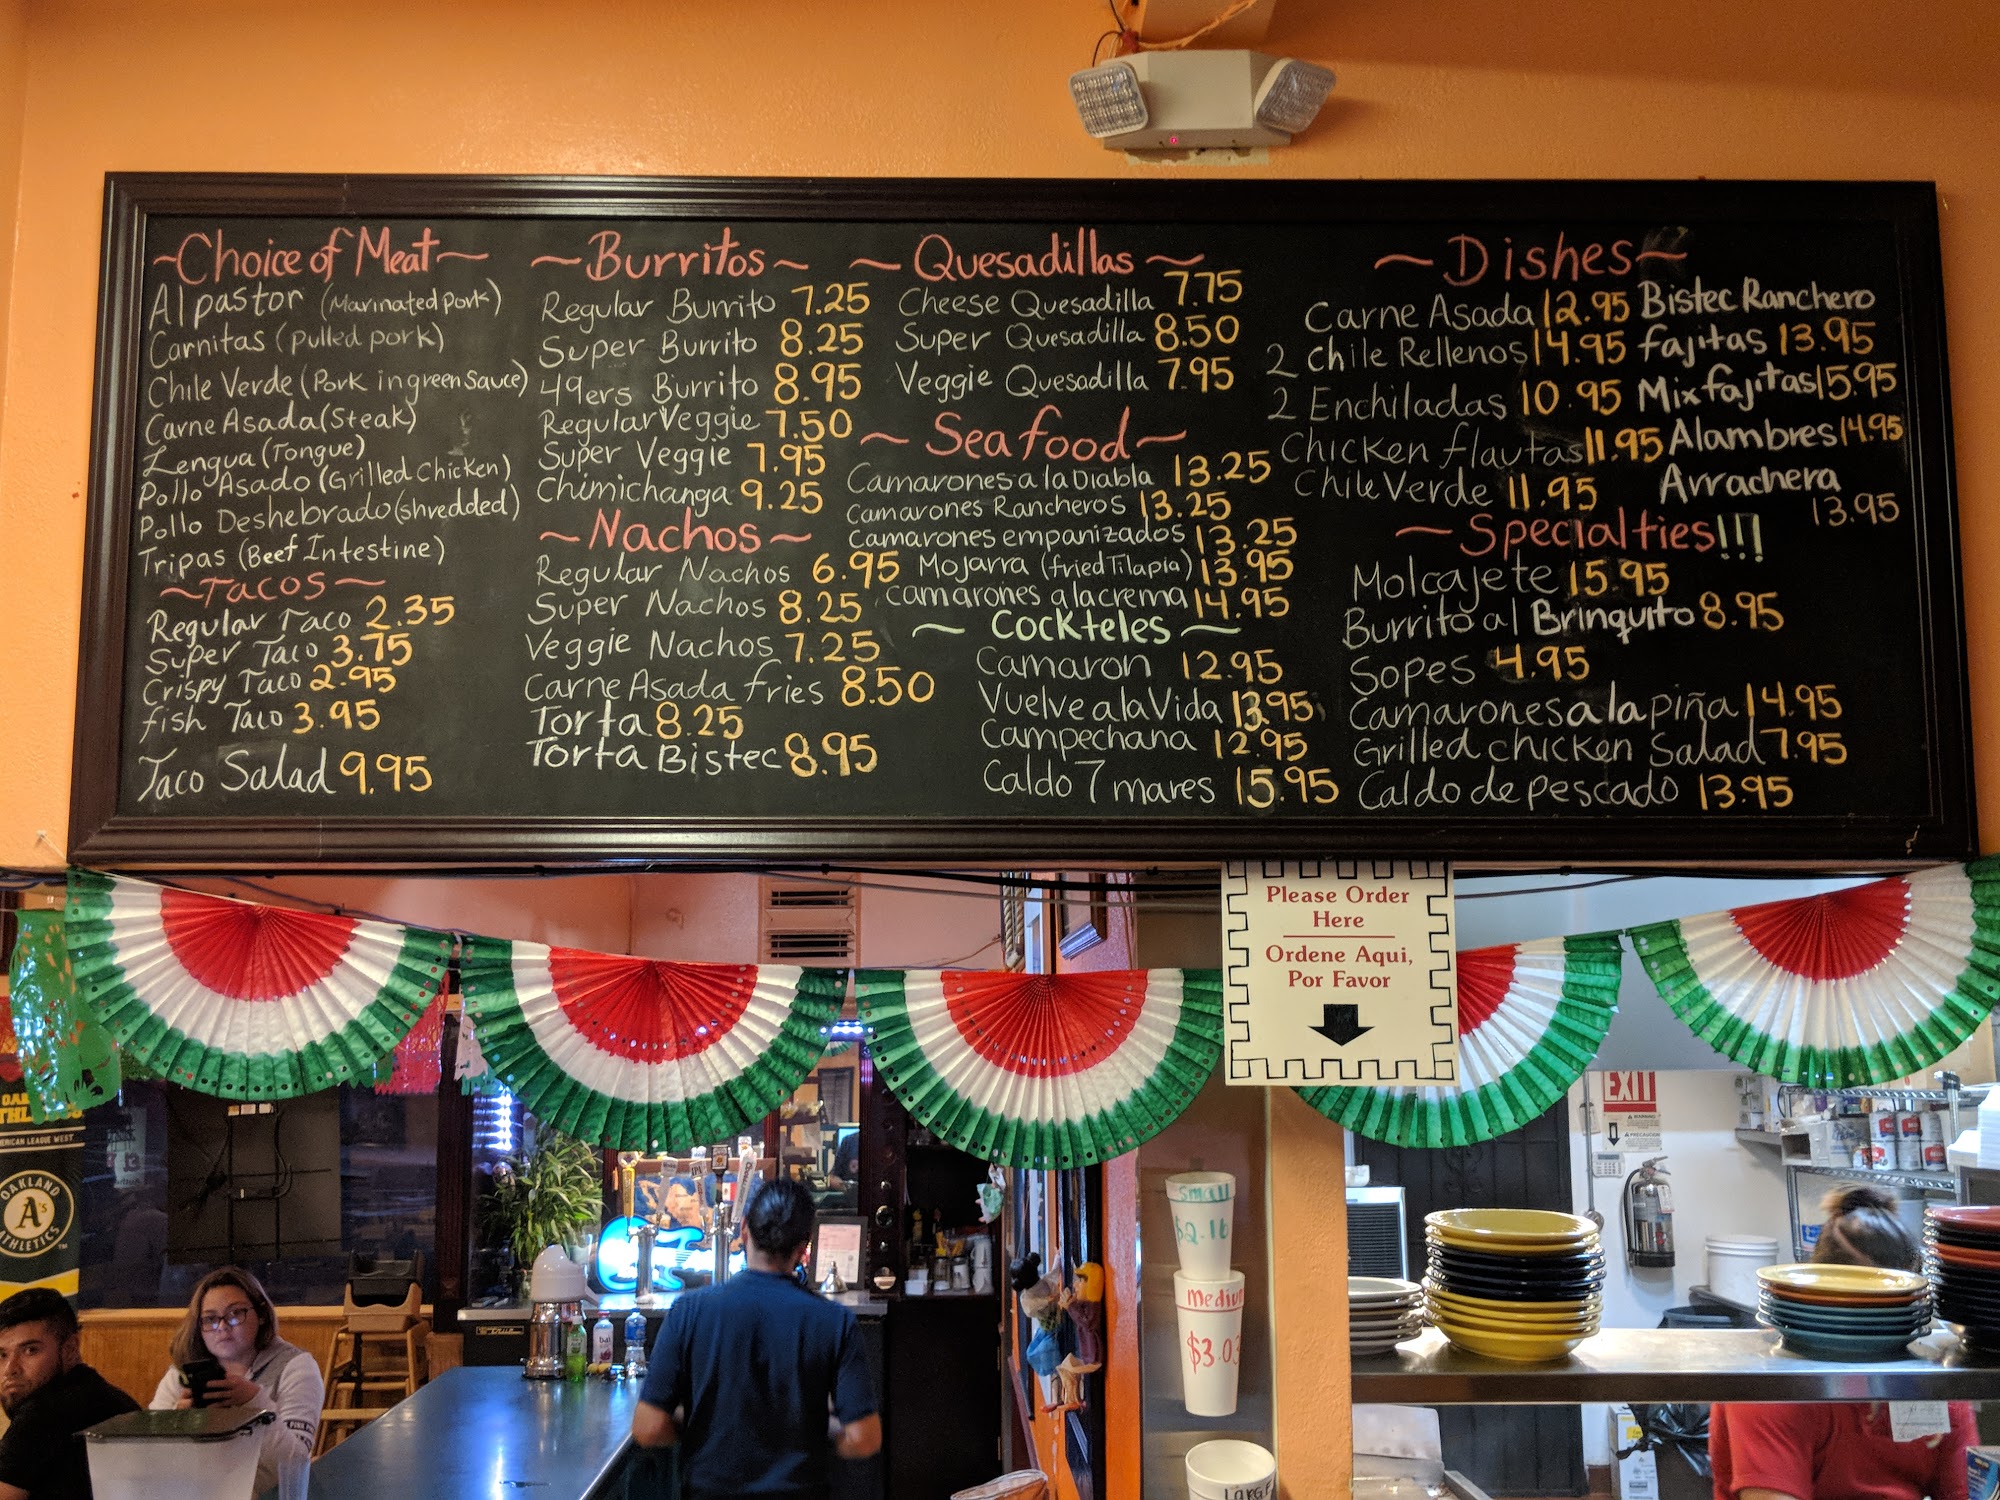 ~Choice of Meat~
Al pastor (Marinated pork)
Carnitas (pulled pork)
Chile Verde (Pork in green Sauce)
Carne Asada (Steak)
Lengua (Tongue)
Pollo Asado (Grilled Chicken)
Pollo Deshebrado (shredded)
Tripas (Beef Intestine)
~Tacos~
Regular Taco 2.35
Super Taco 3.75
Crispy Taco 2.95
fish Taco 3.95
Taco Salad 9.95
~Burritos~
Regular Burrito 7.25
Super Burrito 8.25
49ers Burrito 8.95
Regular Veggie 7.50
Super Veggie 7.95
Chimichanga 9.25
~Nachos~
Regular Nachos 6.95
Super Nachos 8.25
Veggie Nachos 7.25
Carne Asada fries 8.50
Torta 8.25
Torta Bistec 8.95
~Quesadillas~
Cheese Quesadilla 7.75
Super Quesadilla 8.50
Veggie Quesadilla 7.95
~Seafood~
Camarones a la Diabla 13.25
Camarones Rancheros 13.25
Camarones empanizados 13.25
Mojarra (fried Tilapia) 13.95
camarones a la crema 14.95
~Cockteles~
Camaron 12.95
Vuelve a la Vida 13.95
Campechana 12.95
Caldo 7 mares 15.95
~Dishes~
Carne Asada 12.95
2 Chile Rellenos 14.95
2 Enchiladas 10.95
Chicken flautas 11.95
Chile Verde 11.95
Bistec Ranchero
fajitas 13.95
Mix fajitas 15.95
Alambres 14.95
Arrachera
13.95
~Specialties!!!
Molcajete 15.95
Burrito al Brinquito 8.95
Sopes 4.95
Camarones a la piña 14.95
Grilled chicken Salad 7.95
Caldo de pescado 13.95
Please Order
Here
Ordene Aqui,
Por Favor
EXIT
AMERICAN LEAGUE WEST
OAKLAND
A's
ATHLETICS
TM
Small
$2.16
Medium
$3.03
LARGE